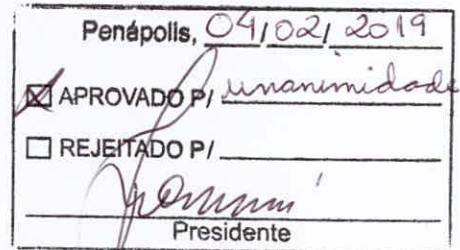 Penápolis, 04/02/2019
☒ APROVADO P/ unanimidade
☐ REJEITADO P/
Presidente